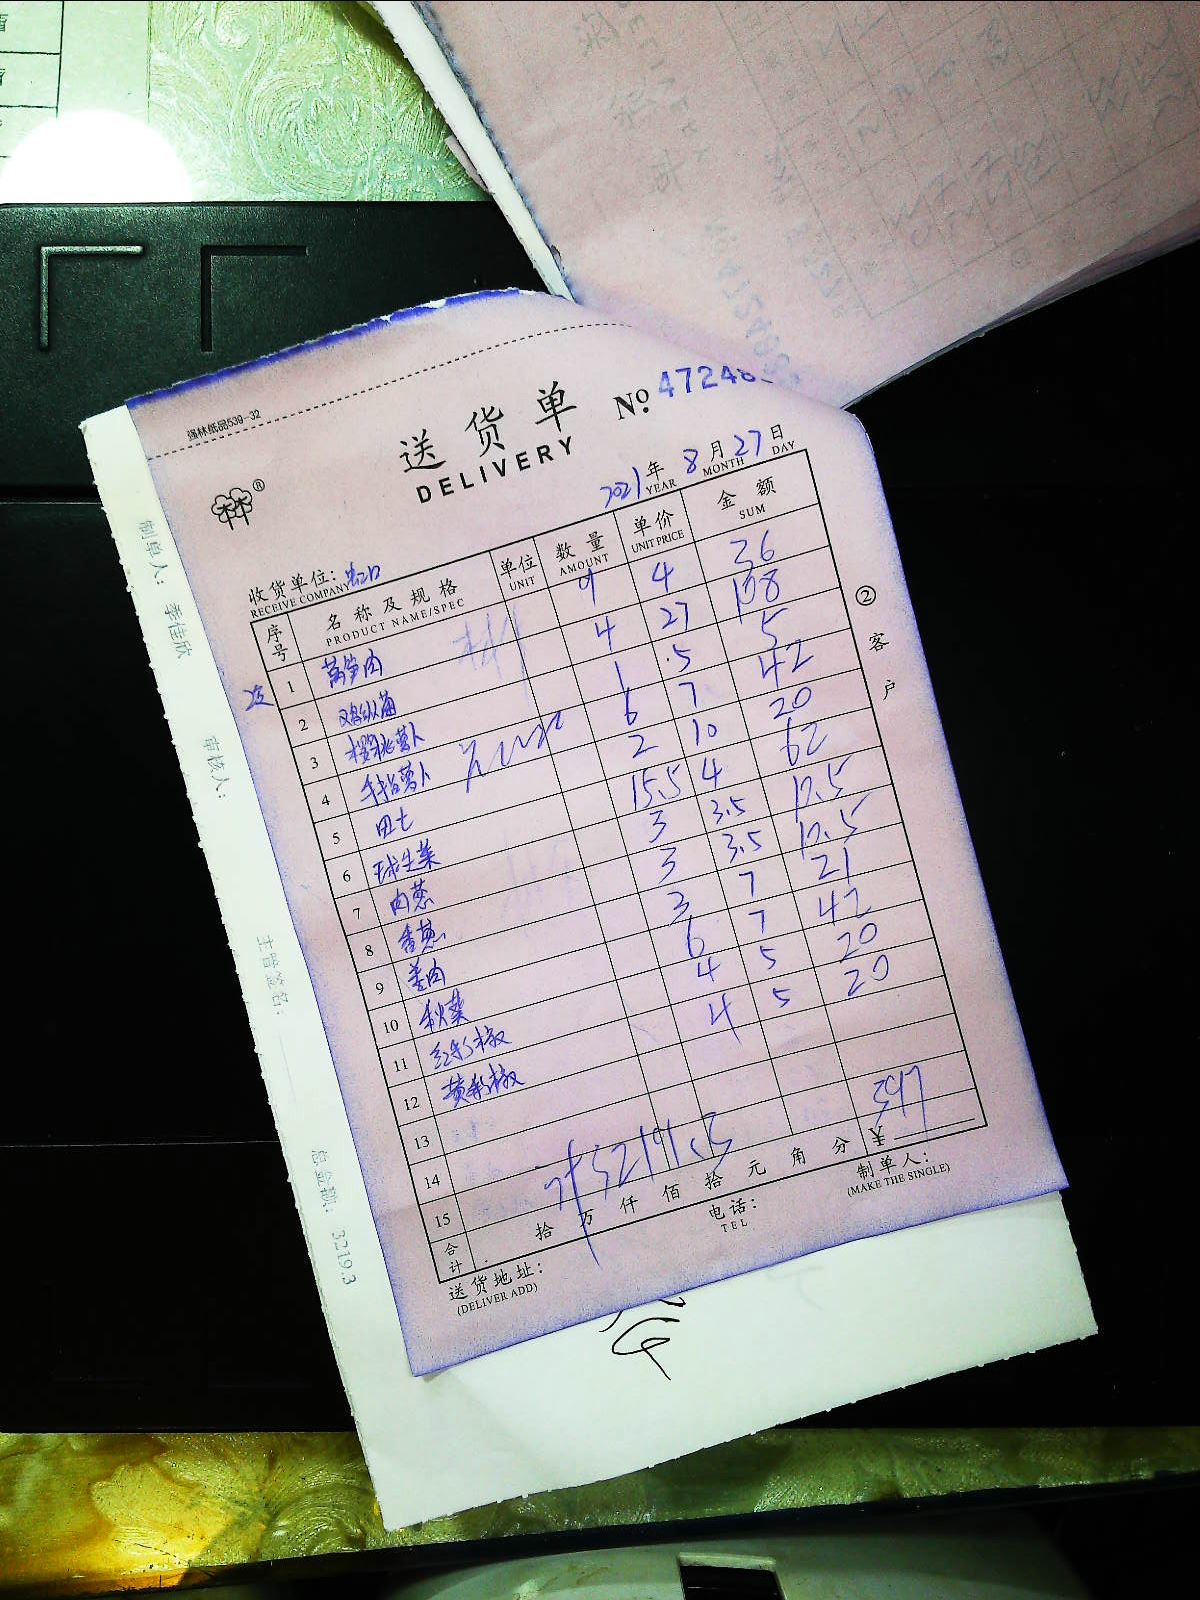 强林纸品539-32
送货单
DELIVERY
No 47248
2021年 8月 27日
YEAR MONTH DAY
收货单位：出口
RECEIVE COMPANY
序号 名称及规格 单位 数量 单价 金额
PRODUCT NAME/SPEC UNIT AMOUNT UNIT PRICE SUM
1 莴笋肉 9 4 36
2 鸡纵菌 4 27 108
3 樱桃萝卜 1 5 5
4 手指萝卜 6 7 42
5 田七 2 10 20
6 球生菜 15.5 4 62
7 肉葱 3 3.5 10.5
8 香葱 3 3.5 10.5
9 姜肉 3 7 21
10 秋葵 6 7 42
11 红彩椒 4 5 20
12 黄彩椒 4 5 20
13
14
15
合计 拾 万 仟 佰 拾 元 角 分 ¥ 397
送货地址：
(DELIVER ADD)
电话：
TEL
制单人：
(MAKE THE SINGLE)
②客户
制单人： 李佳欣
审核人：
主管签名：
总金额： 3219.3